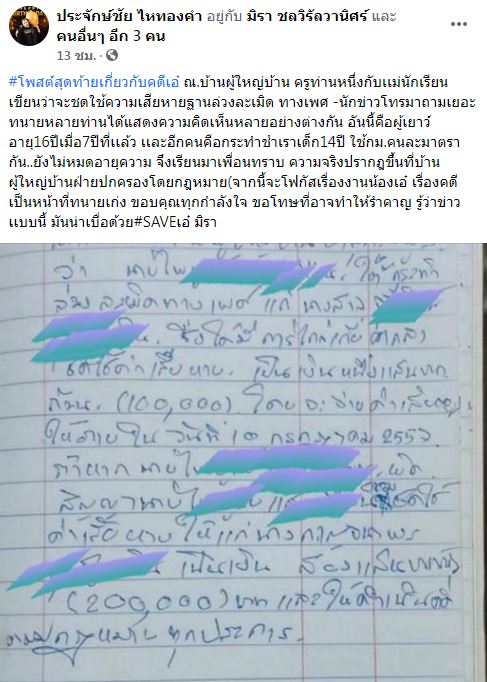 ประจักษ์ชัย ไหทองคำ อยู่กับ มิรา ชลวิรัลวานิศร์ และ
คนอื่นๆ อีก 3 คน
13 ชม.
#โพสต์สุดท้ายเกี่ยวกับคดีเอ๋ ณ.บ้านผู้ใหญ่บ้าน ครูท่านหนึ่งกับแม่นักเรียน
เขียนว่าจะชดใช้ความเสียหายฐานล่วงละเมิด ทางเพศ -นักข่าวโทรมาถามเยอะ
ทนายหลายท่านได้แสดงความคิดเห็นหลายอย่างต่างกัน อันนี้คือผู้เยาว์
อายุ16ปีเมื่อ7ปีที่แล้ว และอีกคนคือกระทำชำเราเด็ก14ปี ใช้กม.คนละมาตรา
กัน..ยังไม่หมดอายุความ จึงเรียนมาเพื่อนทราบ ความจริงปรากฎขึ้นที่บ้าน
ผู้ใหญ่บ้านฝ่ายปกครองโดยกฎหมาย(จากนี้จะโฟกัสเรื่องงานน้องเอ๋ เรื่องคดี
เป็นหน้าที่ทนายเก่ง ขอบคุณทุกกำลังใจ ขอโทษที่อาจทำให้รำคาญ รู้ว่าข่าว
แบบนี้ มันน่าเบื่อด้วย#SAVEเอ๋ มิรา
ว่า นาย ได้กระทำ
ล่วงละเมิดทางเพศ แก่ นางสาว
ซึ่งได้มี การไกล่เกลี่ย
ชดใช้ค่าเสียหาย. เป็นเงินหนึ่งแสนบาท
ถ้วน. (100,000) โดย จะจ่ายค่าเสียหาย
ให้ภายใน วันที่ 10 กรกฎาคม 255
ถ้าหาก นาย ผิด
สัญญา นาย ชดใช้
ค่าเสียหาย ให้แก่ นาง
เป็นเงิน สองแสนบาท
(200,000) บาท และให้ดำเนินคดี
ตามกฎหมาย ทุกประการ.